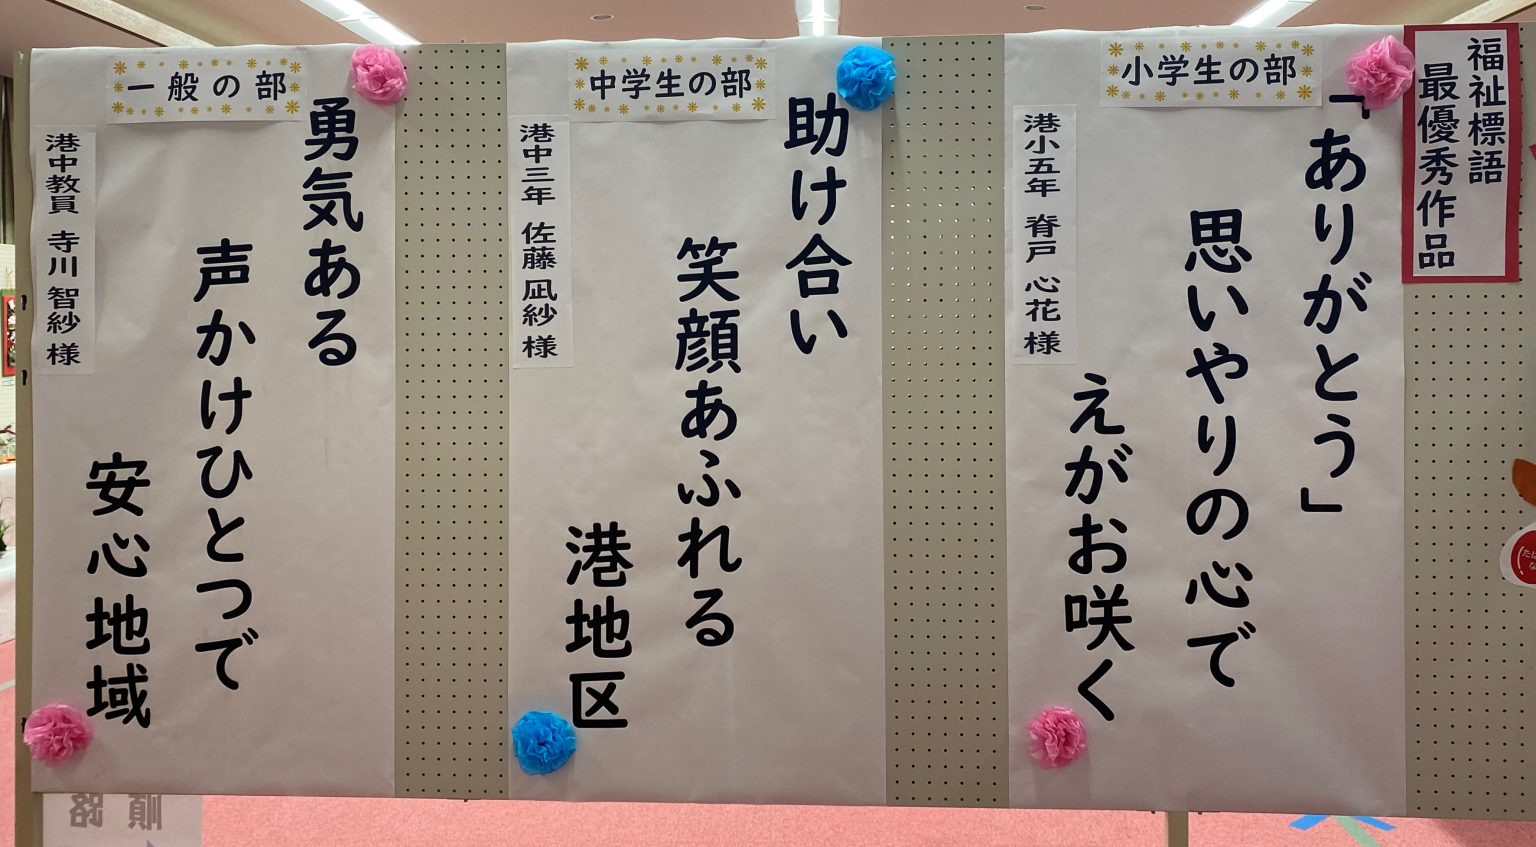 福祉標語
最優秀作品
小学生の部
「ありがとう」
思いやりの心で
えがお咲く
港小五年 脊戸 心花 様
中学生の部
助け合い
笑顔あふれる
港地区
港中三年 佐藤 凪紗 様
一般の部
勇気ある
声かけひとつで
安心地域
港中教員 寺川 智紗 様
順路